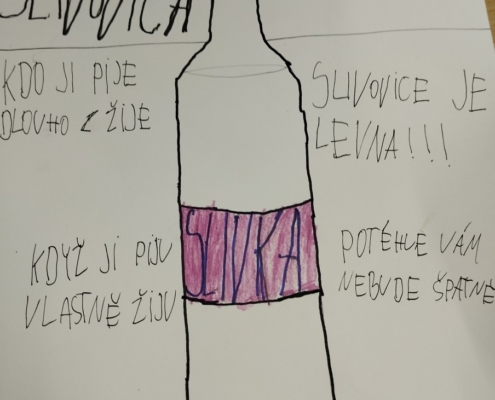 SLIVOVICA
KDO JI PIJE
DLOUHO ŽIJE
SLIVOVICE JE
LEVNA!!!
SLIVKA
KDYŽ JI PIJU
VLASTNĚ ŽIJU
POTÉHLE VÁM
NEBUDE ŠPATNĚ